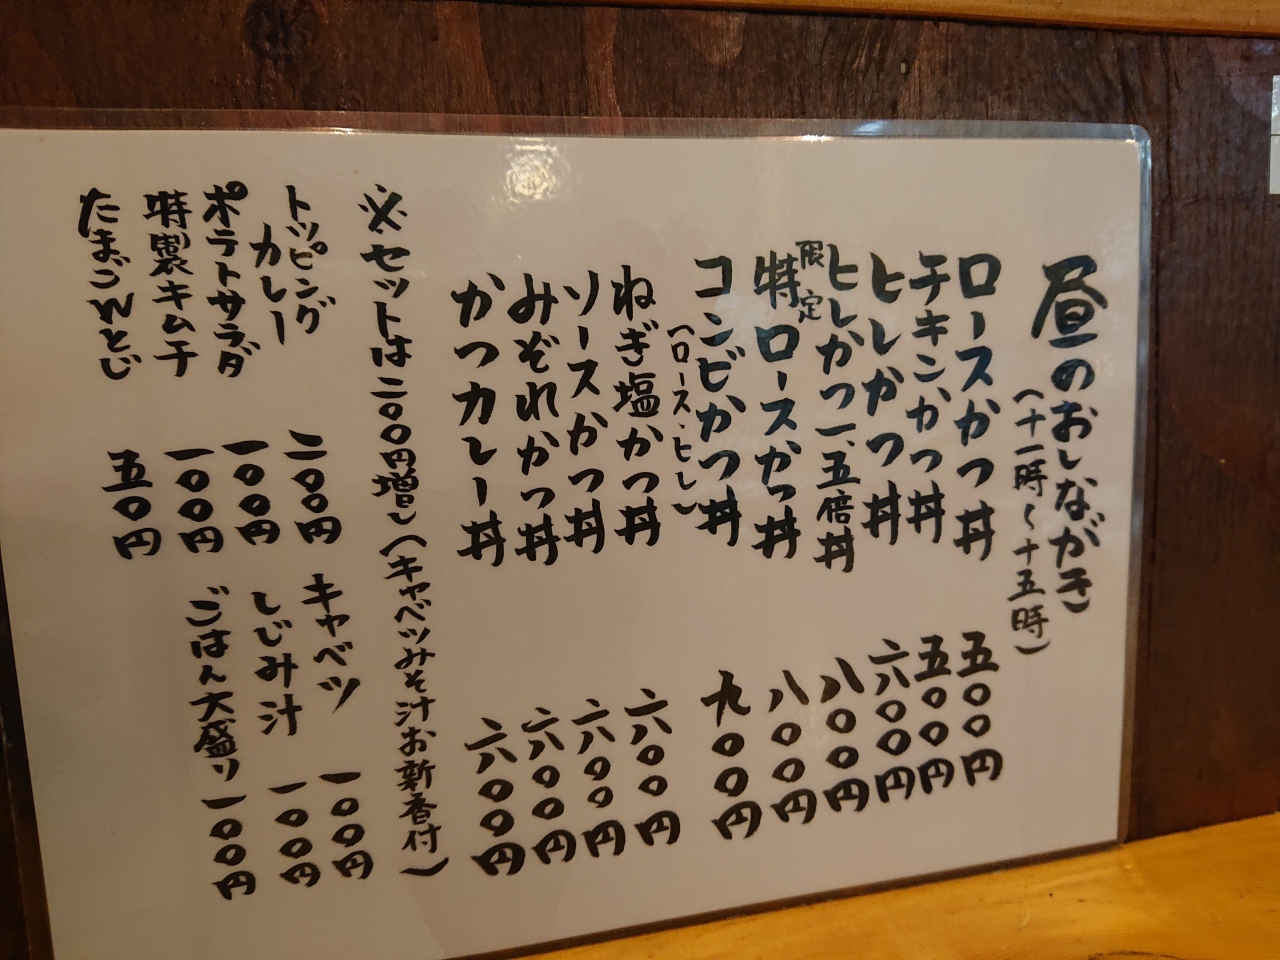 昼のおしながき
(十一時〜十五時)
ロースかつ丼 五〇〇円
チキンかつ丼 五〇〇円
ヒレかつ丼 六〇〇円
ヒレかつ一、五倍丼 八〇〇円
限定
特ロースかつ丼 八〇〇円
コンビかつ丼 九〇〇円
(ロース・ヒレ)
ねぎ塩かつ丼 六〇〇円
ソースかつ丼 六〇〇円
みぞれかつ丼 六〇〇円
かつカレー丼 六〇〇円
※セットは二〇〇円増し(キャベツみそ汁お新香付)
トッピング
カレー 二〇〇円
キャベツ 一〇〇円
ポテトサラダ 一〇〇円
しじみ汁 一〇〇円
特製キムチ 一〇〇円
ごはん大盛り 一〇〇円
たまごWとじ 五〇円